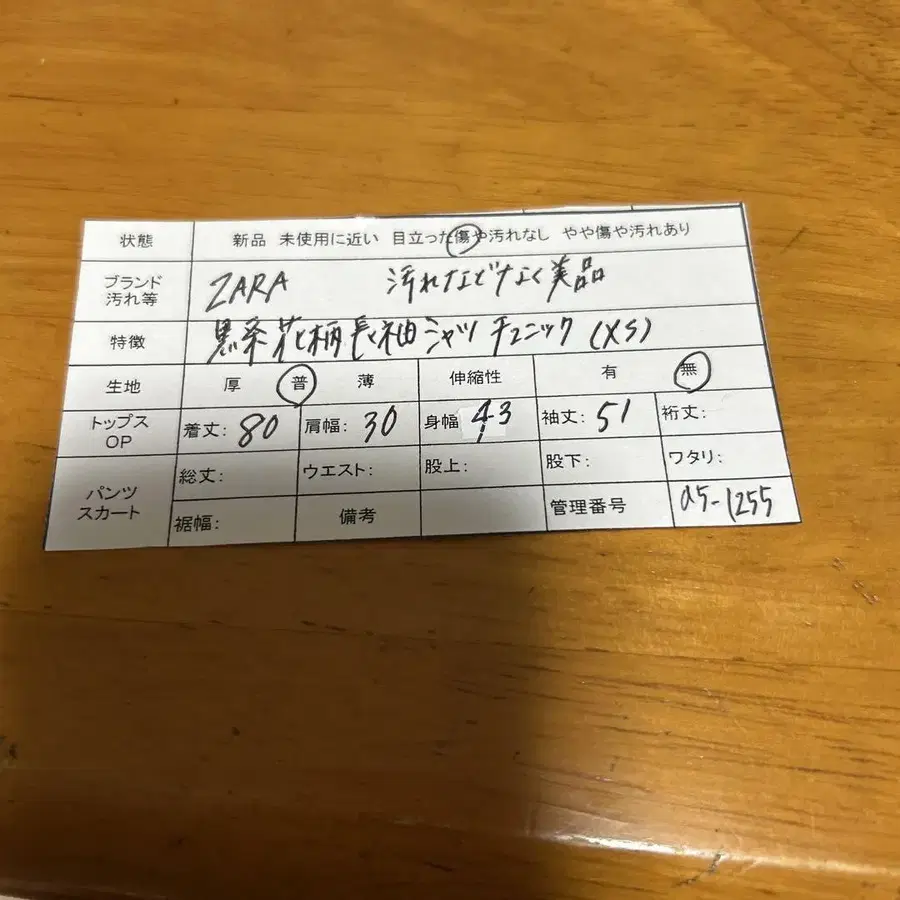 状態 新品 未使用に近い 目立った傷や汚れなし やや傷や汚れあり
ブランド 汚れ等 ZARA 汚れなどなく美品
特徴 黒系花柄長袖シャツチュニック (XS)
生地 厚 普 薄 伸縮性 有 無
トップス OP 着丈: 80 肩幅: 30 身幅 43 袖丈: 51 裄丈:
パンツ スカート 総丈: ウエスト: 股上: 股下: ワタリ:
裾幅: 備考 管理番号 a5-1255